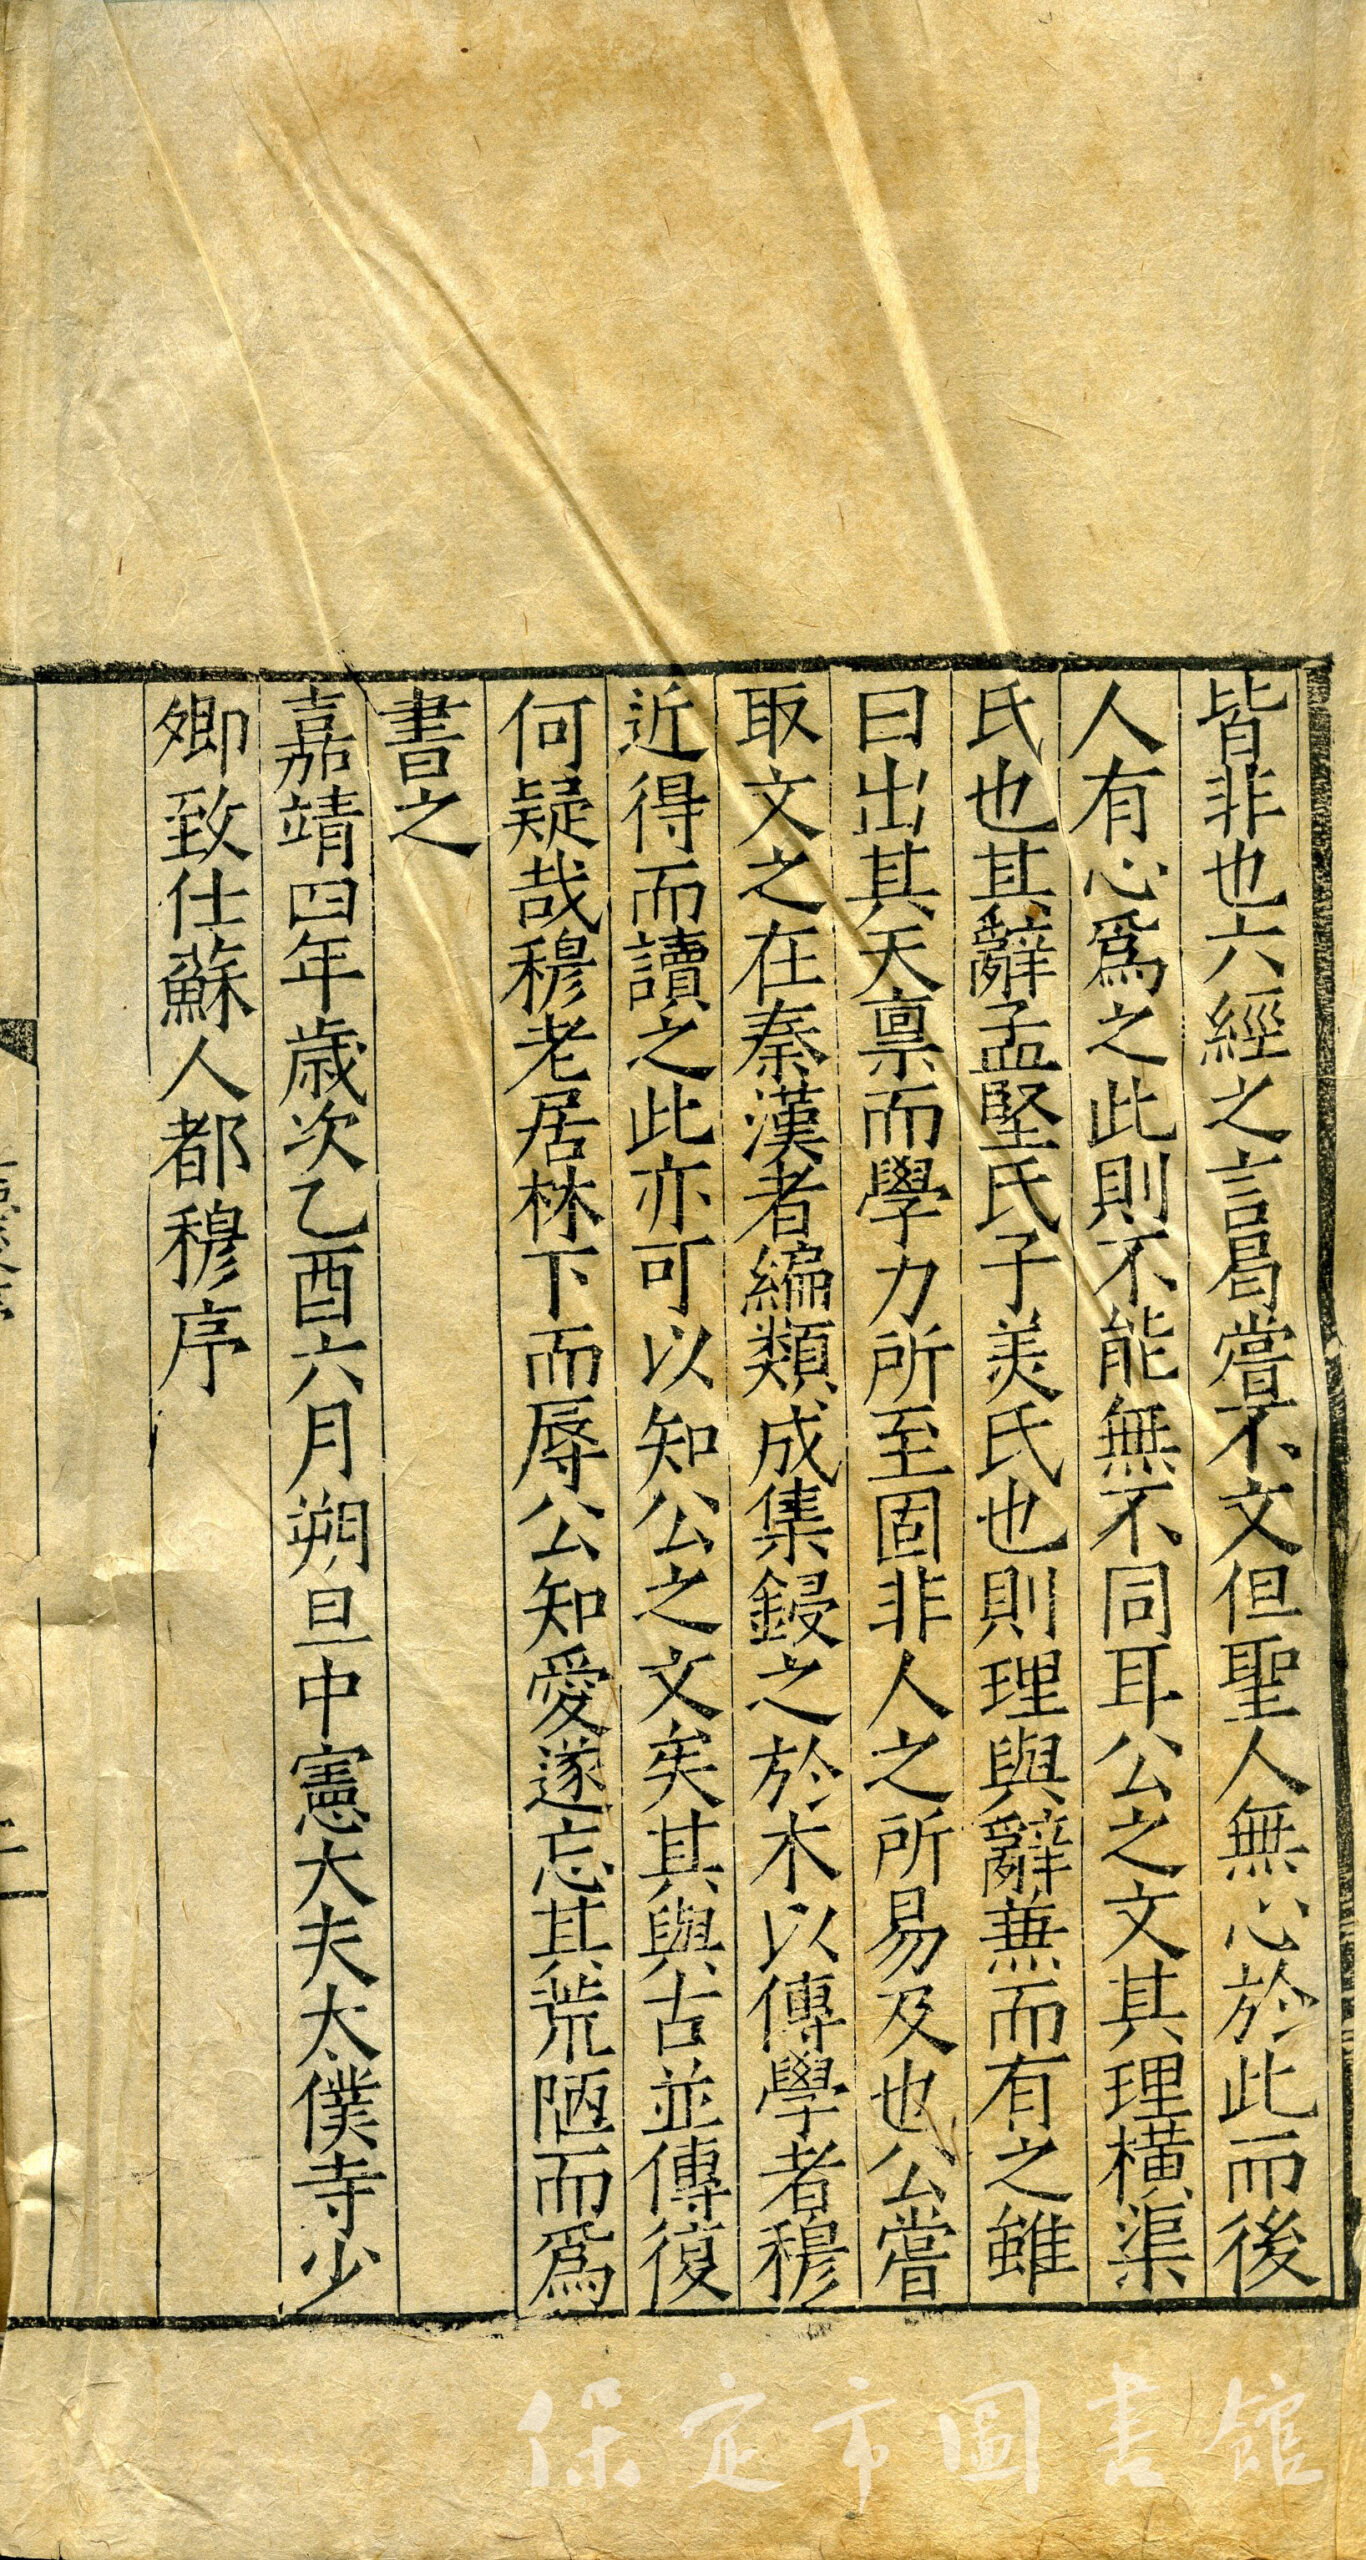 皆非也六經之言曷嘗不文但聖人無心於此而後
人有心爲之此則不能無不同耳公之文其理橫渠
氏也其辭孟堅氏子美氏也則理與辭兼而有之雖
曰出其天禀而學力所至固非人之所易及也公嘗
取文之在秦漢者編類成集鋟之於木以傳學者穆
近得而讀之此亦可以知公之文矣其與古並傳復
何疑哉穆老居林下而辱公知愛遂忘其荒陋而爲
書之
嘉靖四年歲次乙酉六月朔旦中憲大夫太僕寺少
卿致仕蘇人都穆序
保定市圖書館